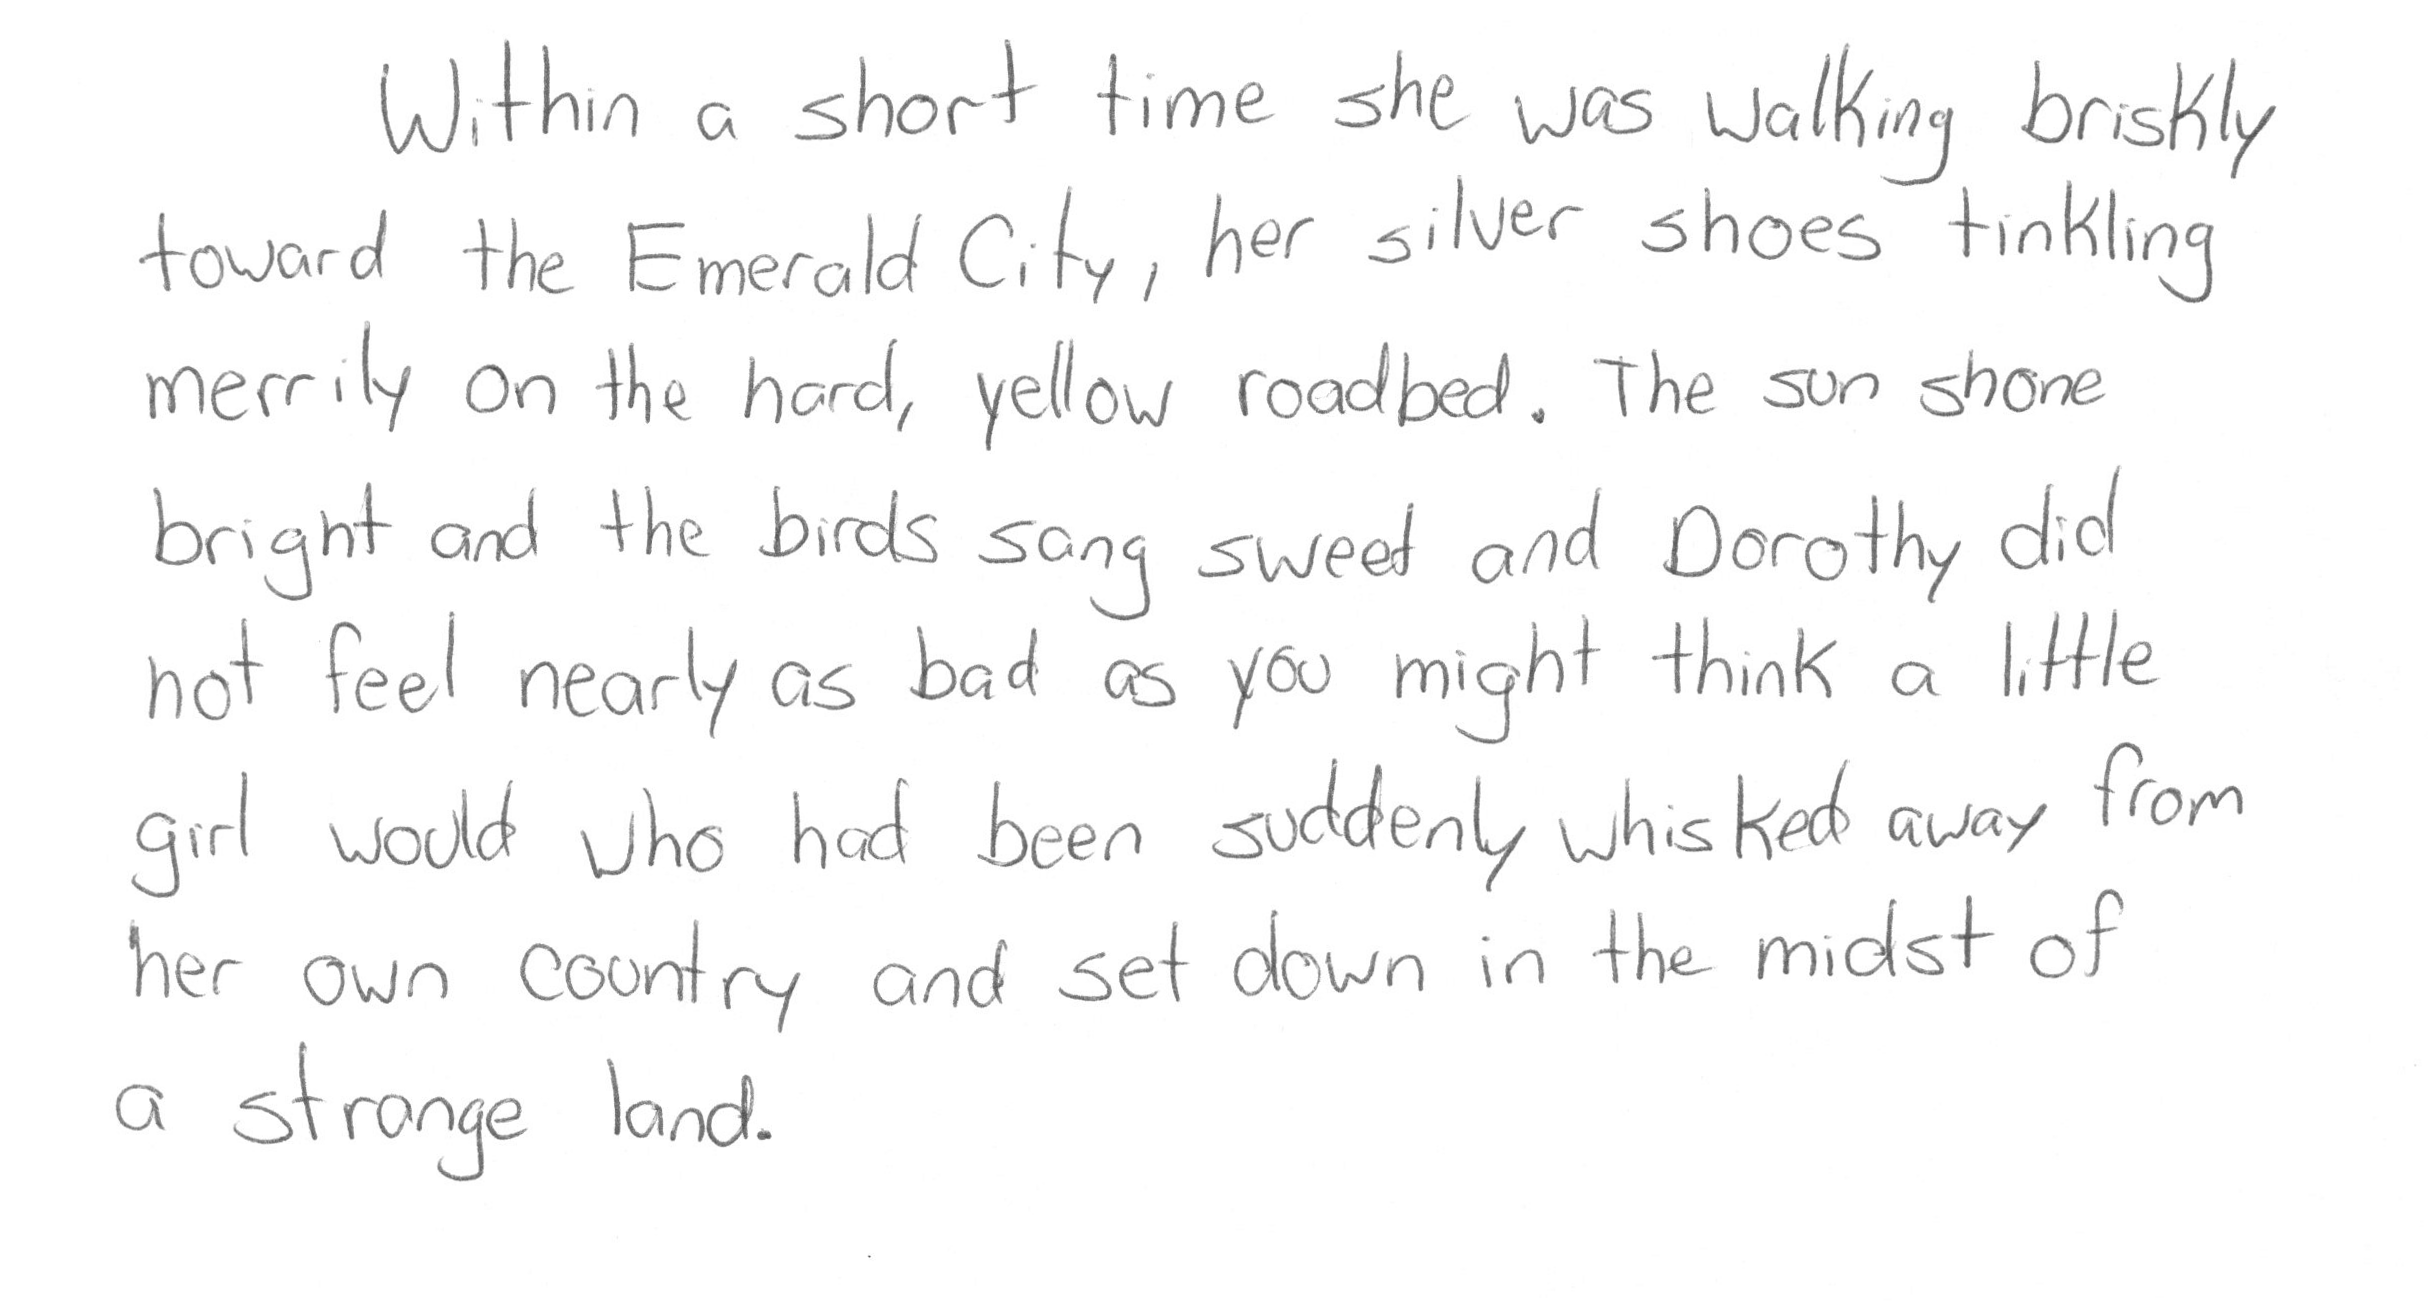 Within a short time she was walking briskly
toward the Emerald City, her silver shoes tinkling
merrily on the hard, yellow roadbed. The sun shone
bright and the birds sang sweet and Dorothy did
not feel nearly as bad as you might think a little
girl would who had been suddenly whisked away from
her own country and set down in the midst of
a strange land.